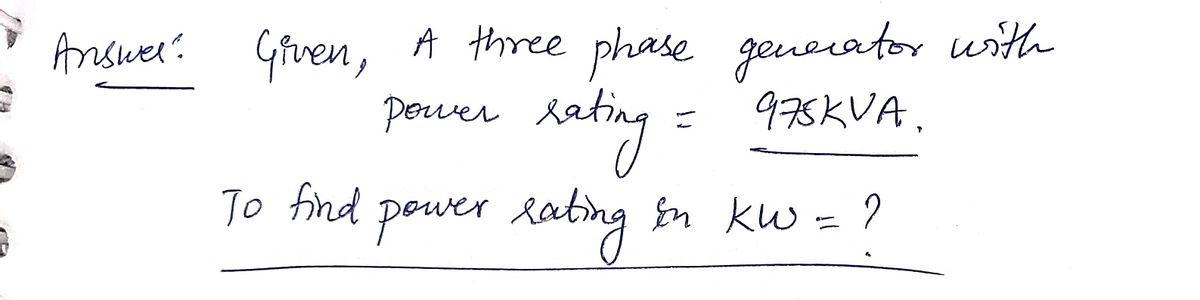 Answer: Given, A three phase generator with
power rating = 975KVA.
To find power rating in KW = ?